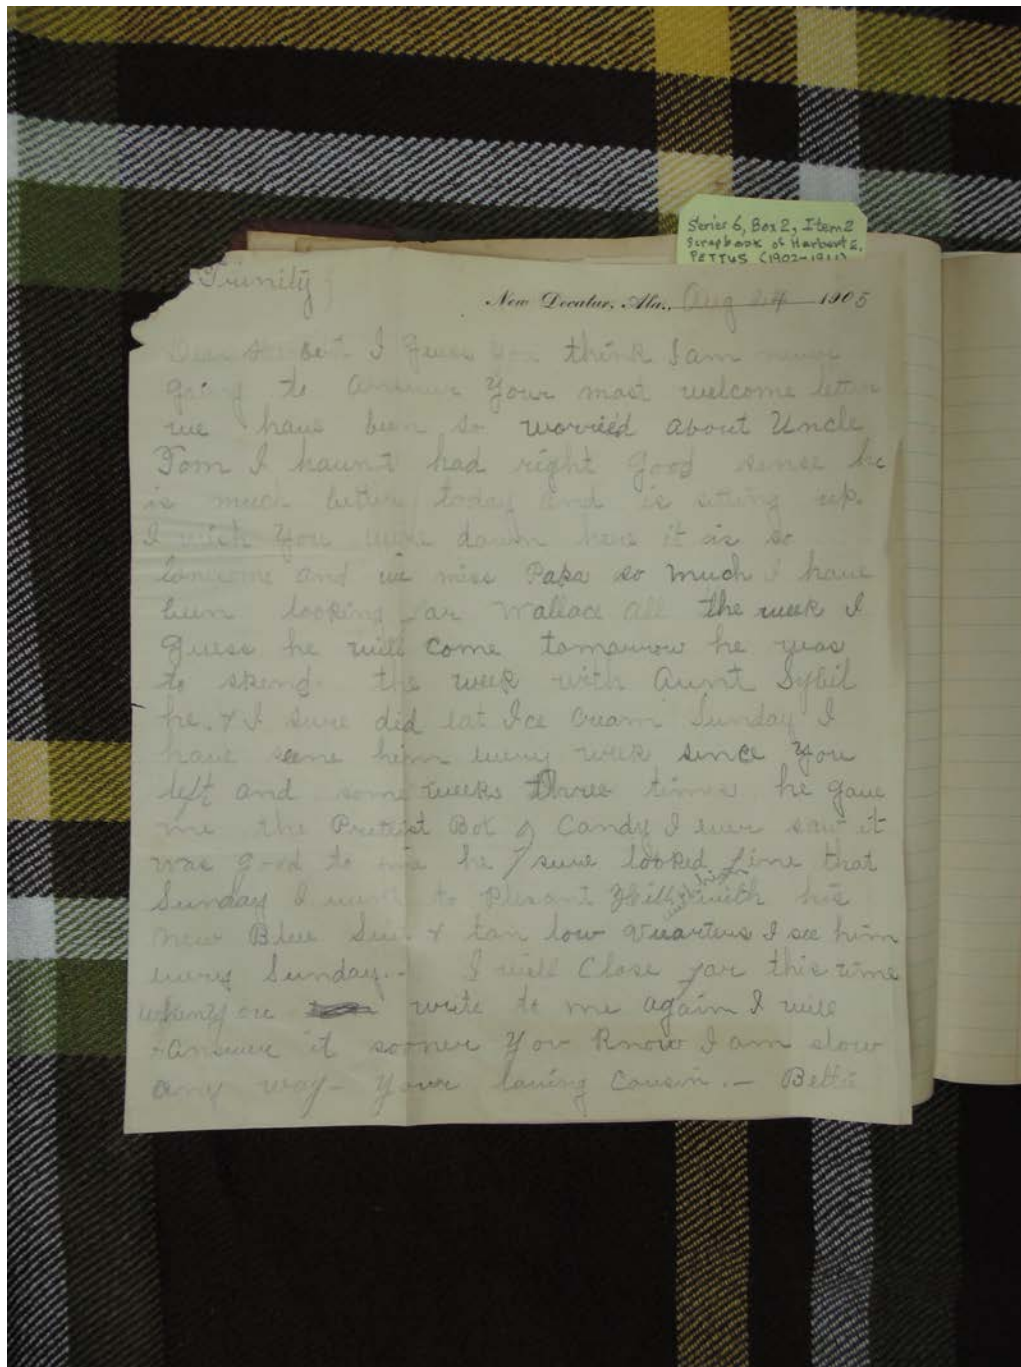 Series 6, Box 2, Item 2
Scrapbook of Herbert E.
PETTUS (1902-1911)
Trinity
New Decatur, Ala., Aug 24 1905
Dear I guess you think I am never
going to answer your most welcome letter
we have been so worried about Uncle
Tom I haunt had right good sense he
is much better today and is sitting up.
I wish you were down here it is so
lonesome and we miss Papa so much I have
been looking for Wallace all the week I
guess he will come tomorrow he was
to spend the week with Aunt Sybil
he & I sure did eat Ice Cream Sunday I
have seene him every week since you
left and some weeks three times he gave
me the Pretest Box of Candy I ever saw it
was good to he sure looked fine that
Sunday I went to Plesant Hill with his
new Blue Suit & tan low quarters I see him
every Sunday.. I will Close for this time
when you write to me again I will
answer it sooner You Know I am slow
any way - your loving Cousin. - Bettie